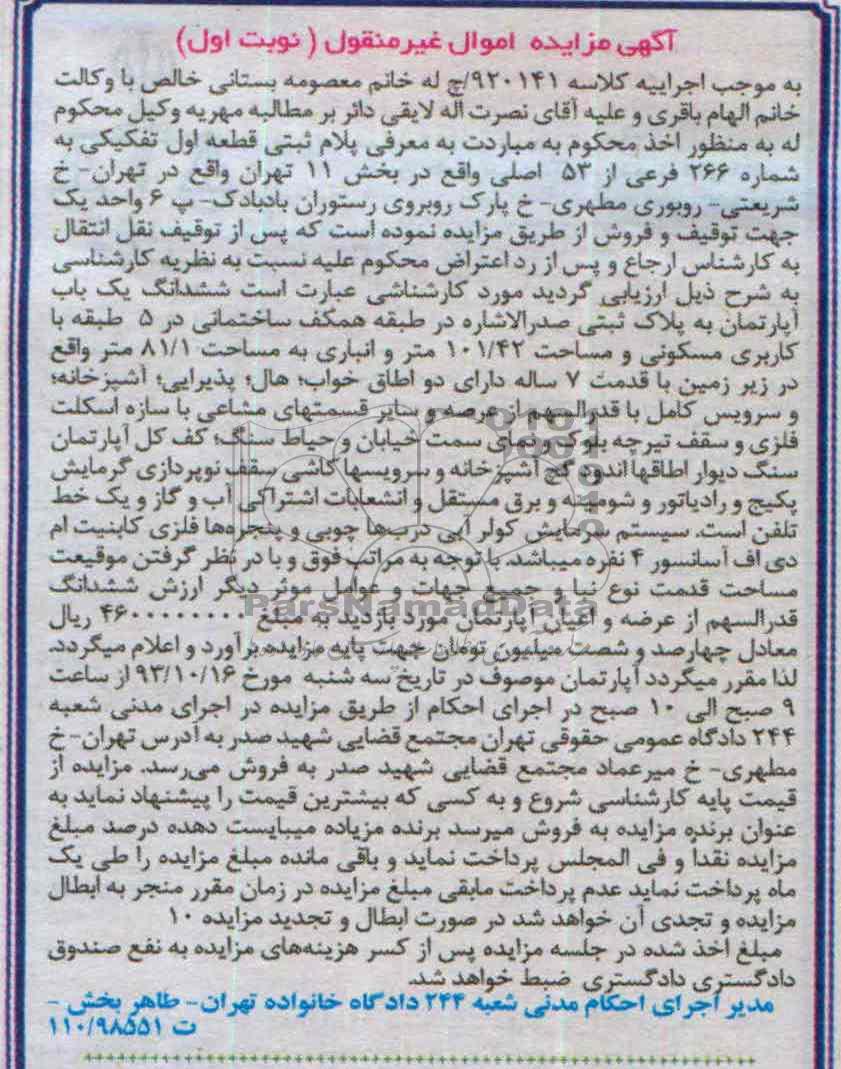 آگهی مزایده اموال غیرمنقول (نوبت اول)
به موجب اجراییه کلاسه ۹۲۰۱۴۱/ج له خانم معصومه بستانی خالص با وکالت
خانم الهام باقری و علیه آقای نصرت اله لایقی دائر بر مطالبه مهریه وکیل محکوم
له به منظور اخذ محکوم به مبادرت به معرفی پلام ثبتی قطعه اول تفکیکی به
شماره ۲۶۶ فرعی از ۵۳ اصلی واقع در بخش ۱۱ تهران واقع در تهران- خ
شریعتی- روبوری مطهری- خ پارک روبروی رستوران بادبادک- پ ۶ واحد یک
جهت توقیف و فروش از طریق مزایده نموده است که پس از توقیف نقل انتقال
به کارشناس ارجاع و پس از رد اعتراض محکوم علیه نسبت به نظریه کارشناسی
به شرح ذیل ارزیابی گردید مورد کارشناشی عبارت است ششدانگ یک باب
آپارتمان به پلاک ثبتی صدرالاشاره در طبقه همکف ساختمانی در ۵ طبقه با
کاربری مسکونی و مساحت ۱۰۱/۴۲ متر و انباری به مساحت ۸۱/۱ متر واقع
در زیر زمین با قدمت ۷ ساله دارای دو اطاق خواب؛ هال؛ پذیرایی؛ آشپزخانه؛
و سرویس کامل با قدرالسهم از عرصه و سایر قسمتهای مشاعی با سازه اسکلت
فلزی و سقف تیرچه بلوک و نمای سمت خیابان و حیاط سنگ؛ کف کل آپارتمان
سنگ دیوار اطاقها اندود گچ آشپزخانه و سرویسها کاشی سقف نوپردازی گرمایش
پکیج و رادیاتور و شومینه و برق مستقل و انشعابات اشتراکی آب و گاز و یک خط
تلفن است. سیستم سرمایش کولر آبی درب‌ها چوبی و پنجره‌ها فلزی کابنیت ام
دی اف آسانسور ۴ نفره میباشد. با توجه به مراتب فوق و با در نظر گرفتن موقیعت
مساحت قدمت نوع نبا و جمیع جهات و عوامل موثر دیگر ارزش ششدانگ
قدرالسهم از عرضه و اعیان آپارتمان مورد بازدید به مبلغ ۴۶۰۰۰۰۰۰۰۰ ریال
معادل چهارصد و شصت میلیون تومان جهت پایه مزایده برآورد و اعلام میگردد.
لذا مقرر میگردد آپارتمان موصوف در تاریخ سه شنبه مورخ ۹۳/۱۰/۱۶ از ساعت
۹ صبح الی ۱۰ صبح در اجرای احکام از طریق مزایده در اجرای مدنی شعبه
۲۴۴ دادگاه عمومی حقوقی تهران مجتمع قضایی شهید صدر به آدرس تهران- خ
مطهری- خ میرعماد مجتمع قضایی شهید صدر به فروش می‌رسد. مزایده از
قیمت پایه کارشناسی شروع و به کسی که بیشترین قیمت را پیشنهاد نماید به
عنوان برنده مزایده به فروش میرسد برنده مزیاده میبایست دهده درصد مبلغ
مزایده نقدا و فی المجلس پرداخت نماید و باقی مانده مبلغ مزایده را طی یک
ماه پرداخت نماید عدم پرداخت مابقی مبلغ مزایده در زمان مقرر منجر به ابطال
مزایده و تجدی آن خواهد شد در صورت ابطال و تجدید مزایده ۱۰
مبلغ اخذ شده در جلسه مزایده پس از کسر هزینه‌های مزایده به نفع صندوق
دادگستری دادگستری ضبط خواهد شد.
مدیر اجرای احکام مدنی شعبه ۲۴۴ دادگاه خانواده تهران- طاهر بخش -
ت ۱۱۰/۹۸۵۵۱
ParsNamadData